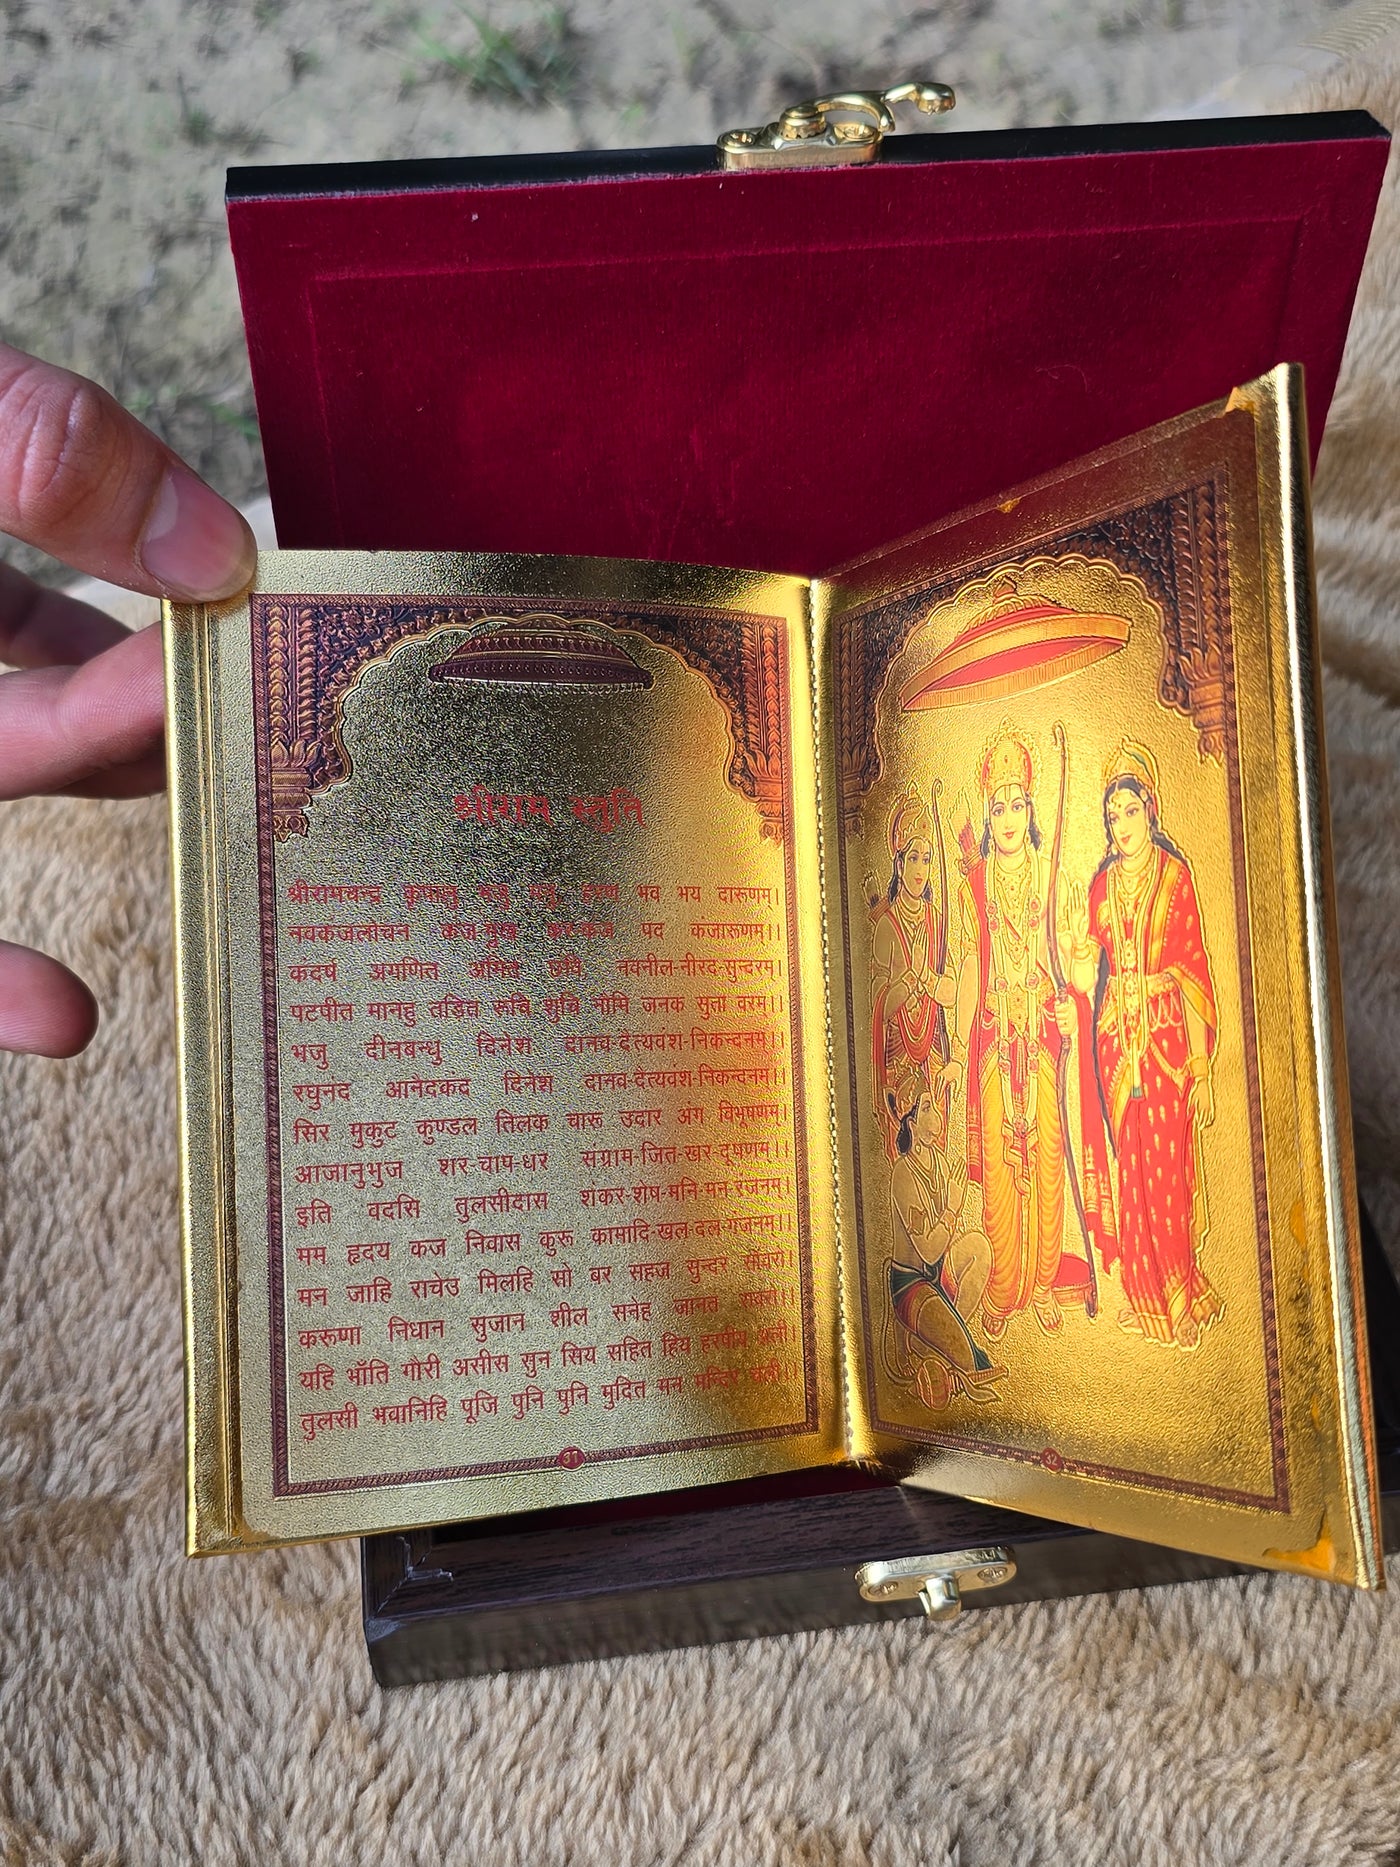 श्रीराम स्तुति
श्रीरामचन्द्र कृपालु भजु मन, हरण भव भय दारूणम्।
नवकंजलोचन कंज-मुख कर-कंज पद कंजारूणम्।।
कंदर्प अगणित अमित छवि, नवनील-नीरद-सुन्दरम्।
पटपीत मानहु तडित रूचि शुचि नौमि जनक सुता वरम्।।
भजु दीनबन्धु दिनेश दानव-दैत्यवंश-निकन्दनम्।।
रघुनंद आनंदकंद दिनेश दानव-दैत्यवंश-निकन्दनम्।।
सिर मुकुट कुण्डल तिलक चारू उदार अंग विभूषणम्।
आजानुभुज शर-चाप-धर संग्राम-जित-खर-दूषणम्।।
इति वदसि तुलसीदास शंकर-शेष-मनि-मन-रंजनम्।
मम हृदय कज निवास कुरू कामादि-खल-दल-गंजनम्।।
मन जाहि राचेउ मिलहि सो बर सहज सुन्दर साँवरो।
करूणा निधान सुजान शील सनेह जानत
यहि भाँति गौरी असीस सुन सिय सहित हिय अली।
तुलसी भवानिहि पूजि पुनि पुनि मुदित मन मन्दिर चली।।
31
32